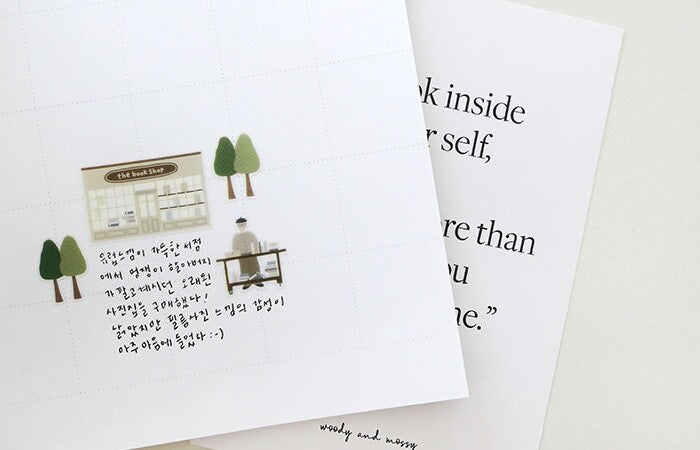 the book shop
유럽느낌이 가득한 서점
에서 멋쟁이 할아버지
가 팔고계시던 오래된
사진집을 구매했다!
낡았지만 필름사진 느낌의 감성이
아주 마음에 들었다 :-)
ok inside
r self,
re than
ou
ne.”
woody and mossy